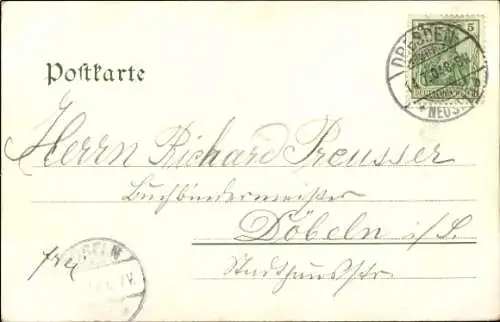 Postkarte
5
DRESDEN
NEUST
Herrn Richard Preusser
Buchbindermeister
Döbeln i/S.
Stadthausstr.
frei
DÖBELN
7V.